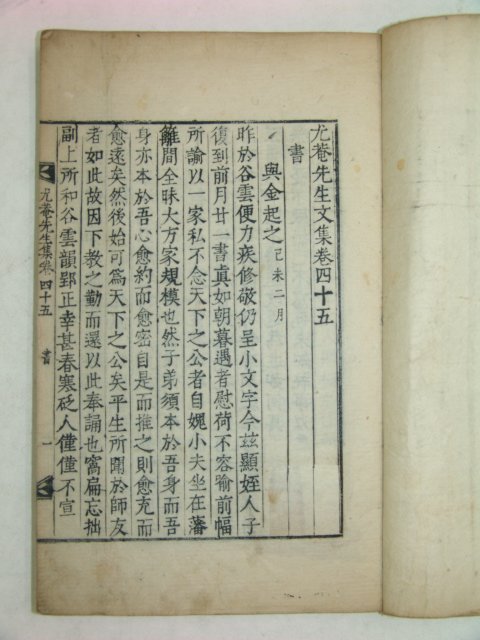 尤菴先生文集卷四十五
書
與金起之 己未二月
昨於谷雲便力疾修敬仍呈小文字今玆顯姪人子
復到前月廿一書真如朝暮遇者慰荷不容喻前幅
所諭以一家私不念天下之公者自媿小夫坐在藩
籬間全昧大方家規模也然子弟須本於吾身而吾
身亦本於吾心愈約而愈密自是而推之則愈充而
愈遠矣然後始可爲天下之公矣平生所聞於師友
者如此故因下敎之勤而還以此奉誦也窩扁忘拙
副上所和谷雲韻郢正幸甚春寒砭人僅僅不宣
尤菴先生集卷四十五 書 一